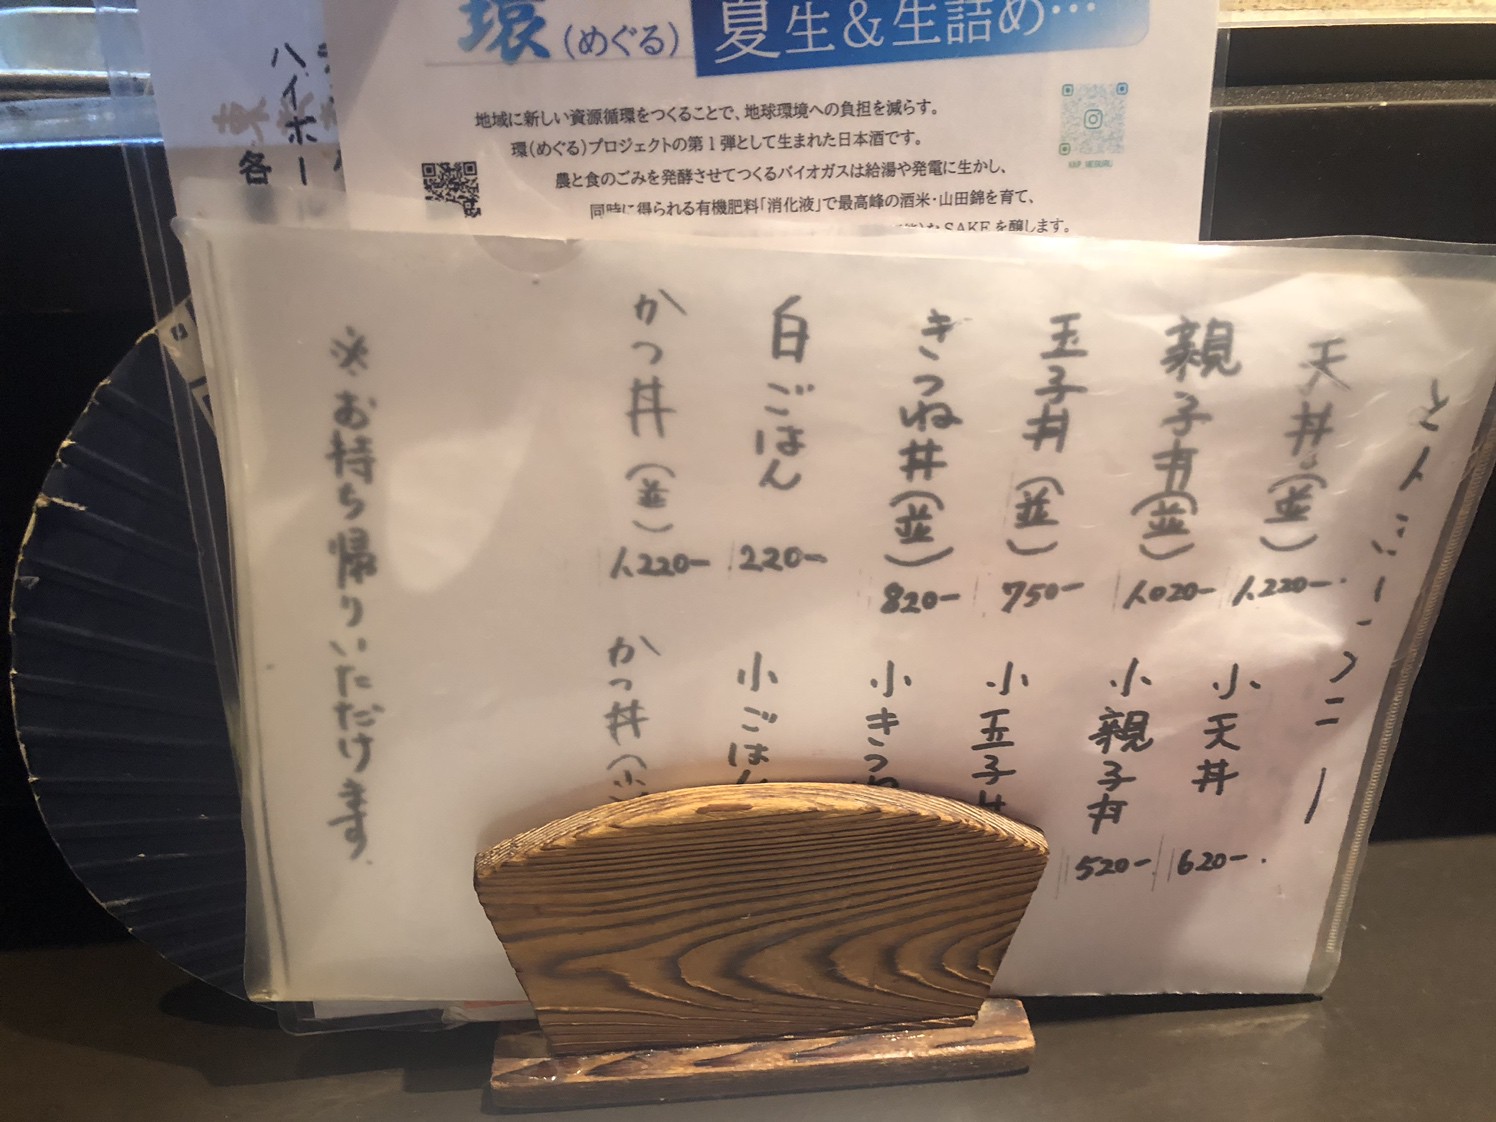 環(めぐる)
夏生&生詰め…
地域に新しい資源循環をつくることで、地球環境への負担を減らす。
環(めぐる)プロジェクトの第1弾として生まれた日本酒です。
農と食のごみを発酵させてつくるバイオガスは給湯や発電に生かし、
同時に得られる有機肥料「消化液」で最高峰の酒米・山田錦を育て、
SAKEを醸します。
ハイボール
各
どんぶりメニュー
天丼(並) 1,220-
親子丼(並) 1,020-
玉子丼(並) 750-
きつね丼(並) 820-
白ごはん 220-
かつ丼(並) 1,220-
小天丼 620-
小親子丼 520-
小玉子丼
小きつね
小ごはん
かつ丼(小
※お持ち帰りいただけます。